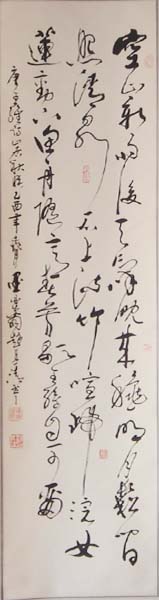 空山新雨後天氣晚來龝明月鬆間
照清泉石上流竹喧歸浣女
蓮動下漁舟隨意春芳歇王孫自可留
唐王維詩山居秋暝乙酉年